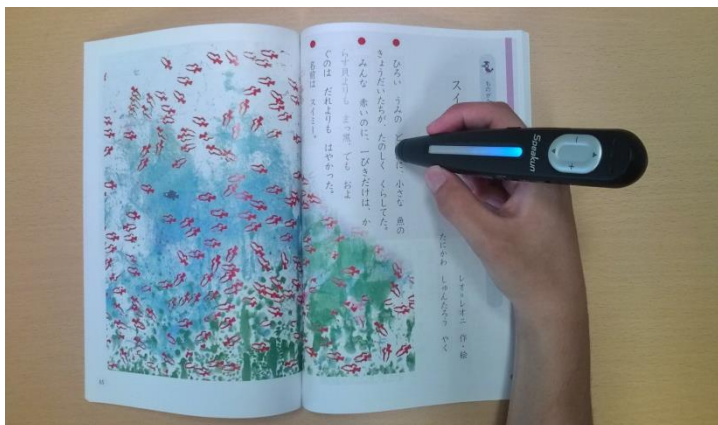 スイ
レオ＝レオニ 作・絵
たにかわ しゅんたろう やく
ひろい うみの に、小さな 魚の
きょうだいたちが、たのしく くらしてた。
みんな 赤いのに、一ぴきだけは、か
らす貝よりも まっ黒、でも およ
ぐのは だれよりも はやかった。
名前は スイミー。
Speakun